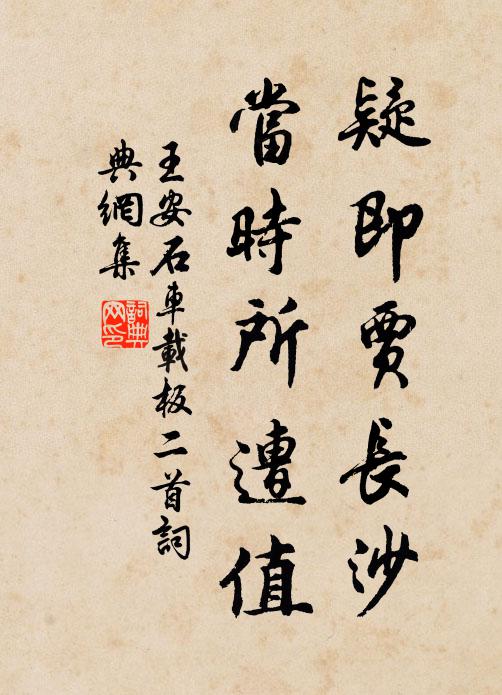 疑即賈長沙
當時所遭值
王安石車載板二首詞
典網集
詞典网印